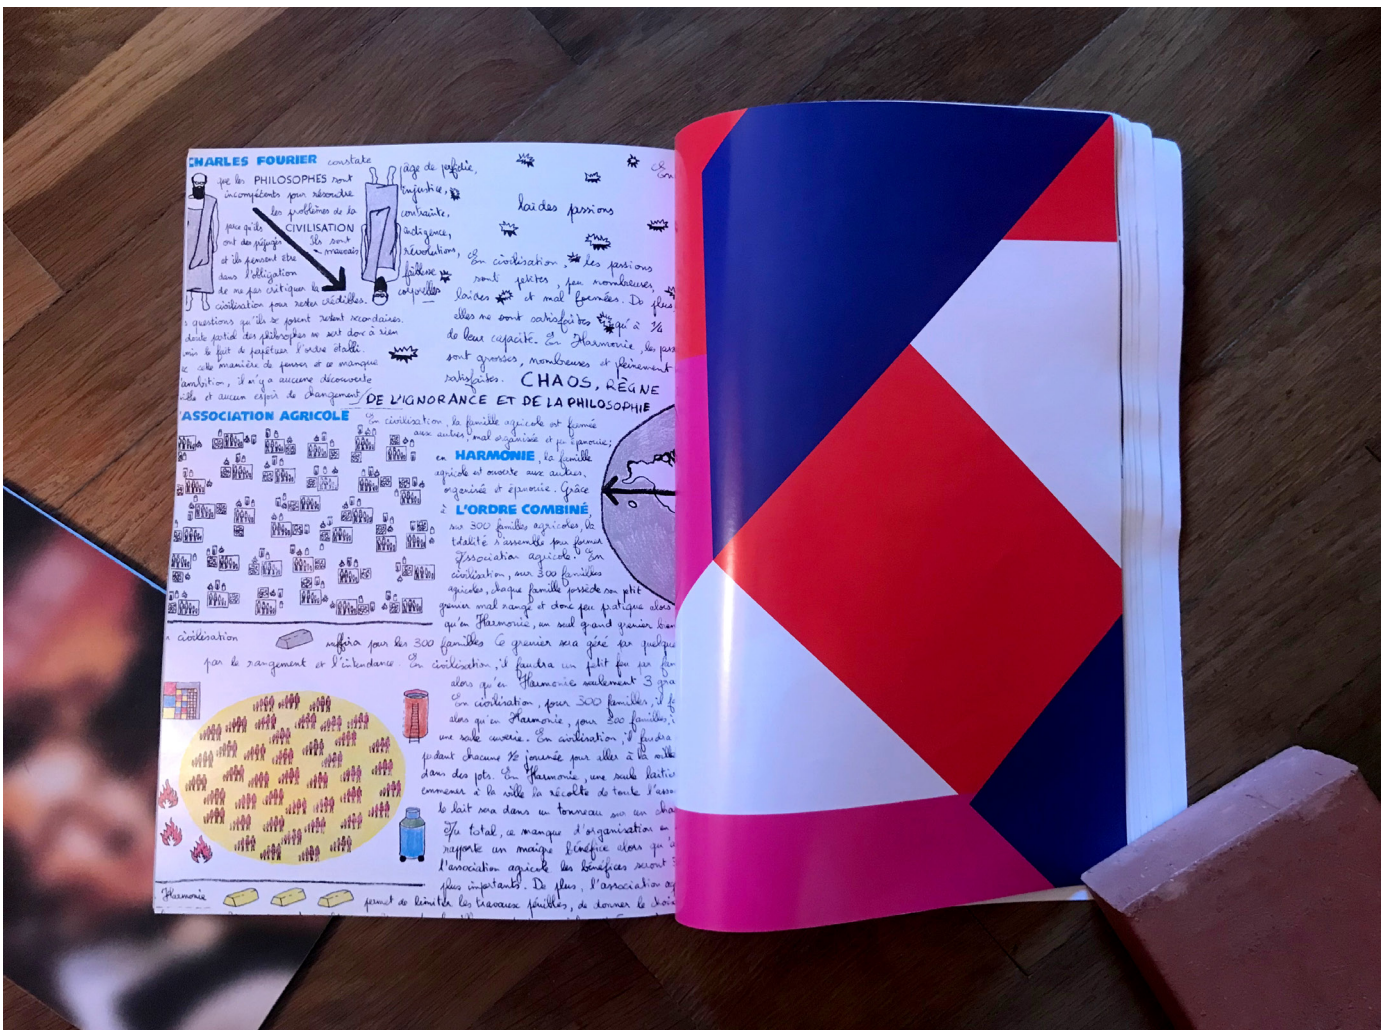 CHARLES FOURIER constate
que les PHILOSOPHES sont
incompétents pour résoudre
les problèmes de la
CIVILISATION
parce qu'ils
ont des préjugés
Ils sont
mauvais
et ils pensent être
dans l'obligation
de ne pas critiquer la
civilisation pour rester crédibles.
s questions qu'ils se posent restent secondaires.
doute partiel des philosophes ne sert donc à rien
le fait de perpétuer l'ordre établi.
cette manière de penser et ce manque
ambition, il n'y a aucune découverte
et aucun espoir de changement
âge de perfidie,
injustice,
contrainte,
indigence,
révolutions,
faiblesse
corporelles
laides passions
En civilisation, les passions
sont petites, peu nombreuses,
laides et mal formées. De plus,
elles ne sont satisfaites qu'à 1/4
de leur capacité. En Harmonie, les pas
sont grosses, nombreuses et pleinement
satisfaites.
CHAOS, RÈGNE
DE L'IGNORANCE ET DE LA PHILOSOPHIE
ASSOCIATION AGRICOLE
En civilisation, la famille agricole est fermée
aux autres, mal organisée et peu épanouie;
en HARMONIE, la famille
agricole est ouverte aux autres,
organisée et épanouie. Grâce
à L'ORDRE COMBINÉ,
sur 300 familles agricoles, la
totalité s'assemble pour former
l'Association agricole. En
civilisation, sur 300 familles
agricoles, chaque famille possède son petit
grenier mal rangé et donc peu pratique alors
qu'en Harmonie, un seul grand grenier bien
civilisation
suffira pour les 300 familles. Ce grenier sera géré par quelque
par le rangement et l'intendance. En civilisation, il faudra un petit feu par fam
alors qu'en Harmonie seulement 3 gra
En civilisation, pour 300 familles, il f
alors qu'en Harmonie, pour 300 familles, i
une seule cuverie. En civilisation, il faudra
perdant chacune 1/2 journée pour aller à la ville
dans des pots. En Harmonie, une seule laitiè
emmener à la ville la récolte de toute l'asso
le lait sera dans un tonneau sur un cha
Au total, ce manque d'organisation en
rapporte un maigre bénéfice alors qu'a
l'association agricole les bénéfices seront 3
plus importants. De plus, l'association ag
Harmonie
permet de limiter les travaux pénibles, de donner le choix